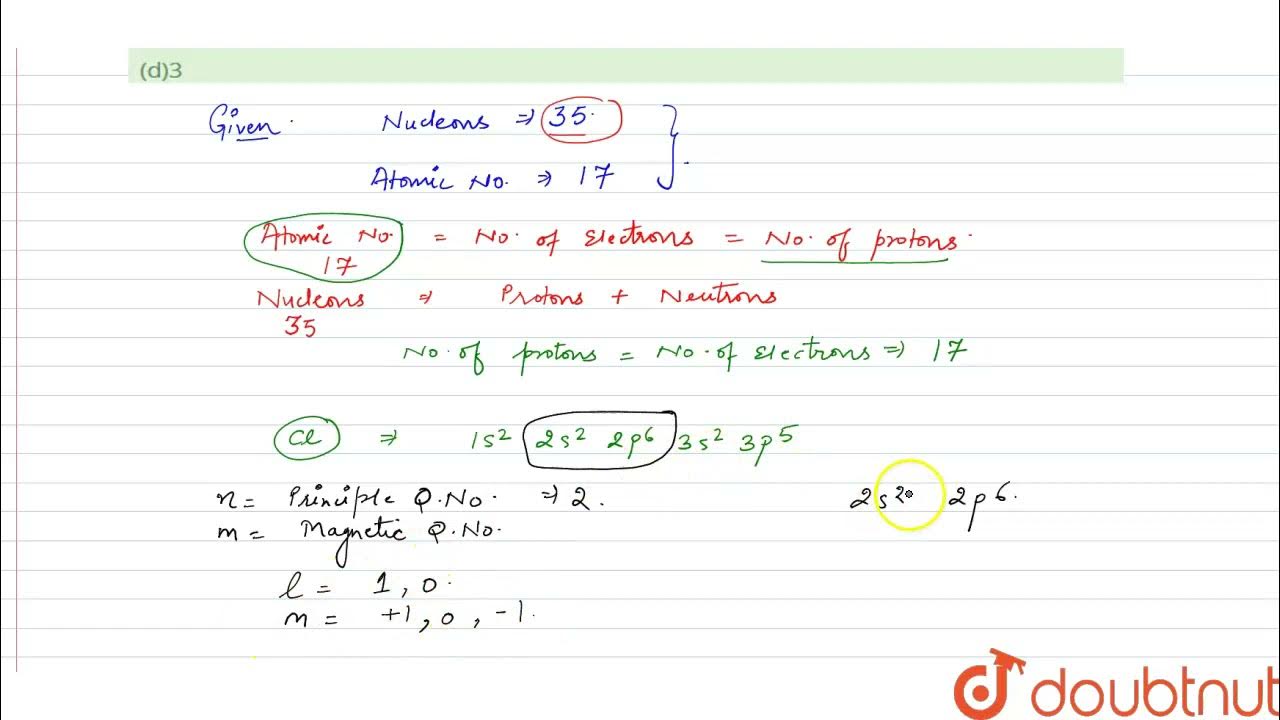 (d)3
Given. Nucleons ⇒ 35.
Atomic No. ⇒ 17
Atomic No. = No. of electrons = No. of protons.
17
Nucleons ⇒ Protons + Neutrons
35
No. of protons = No. of electrons ⇒ 17
Cl ⇒ 1s² 2s² 2p⁶ 3s² 3p⁵
n = Principle Q.No. ⇒ 2. 2s² 2p⁶.
m = Magnetic Q.No.
l = 1, 0.
m = +1, 0, -1.
doubtnut